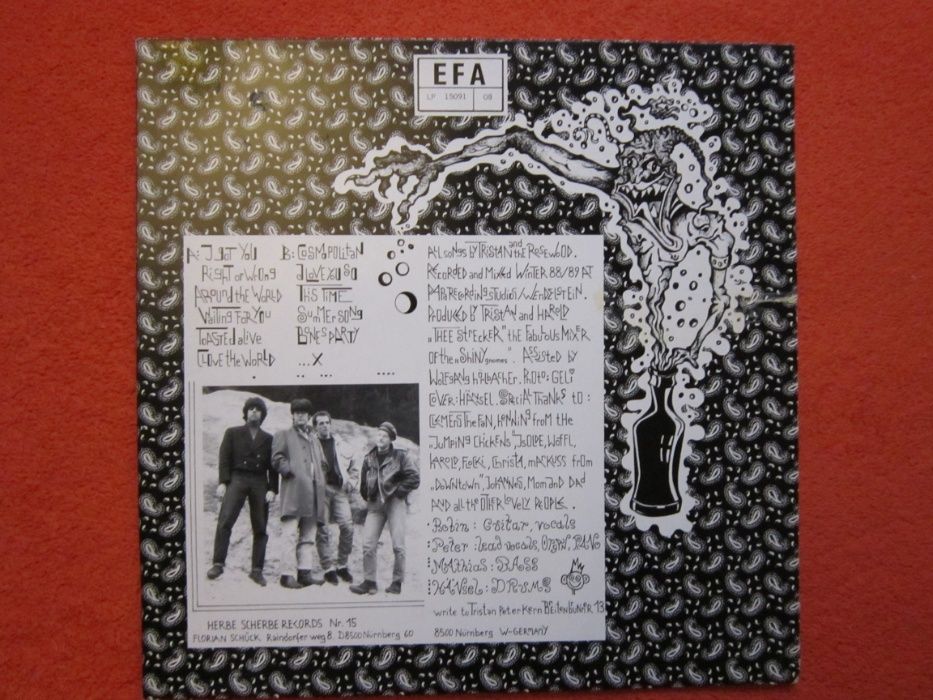 EFA
LP 15091 08
A: I got You
Right or Wrong
Around the World
Waiting For You
Toasted alive
I Love the World
B: Cosmopolitan
I Love you so
This Time
Summersong
Bones Party
...X
All songs by Tristan and the Rosewood.
Recorded and mixed Winter 88/89 at
Papa Recordingstudios/Wendelstein.
Produced by Tristan and Harold
„Thee Strecker" the Fabulous Mixer
of the „Shiny gnomes". Assisted by
Wolfgang Hilbacher. Photo: Geli
Cover: Hänsel. Special Thanks to:
Clemens the Fan, Henning from the
„Jumping Chickens", Isolde, Woffl,
Harold, Flocki, Christa, Mackuss from
„Downtown", Johannes, Mom and Dad
and all the other lovely people.
Robin: Guitar, vocals
Peter: lead vocals, Organ, Piano
Mathias: Bass
Hänsel: Drums
write to Tristan Peter Kern 13
8500 Nürnberg W-Germany
HERBE SCHERBE RECORDS Nr. 15
FLORIAN SCHÜCK Raindorferweg 8. D8500 Nürnberg 60